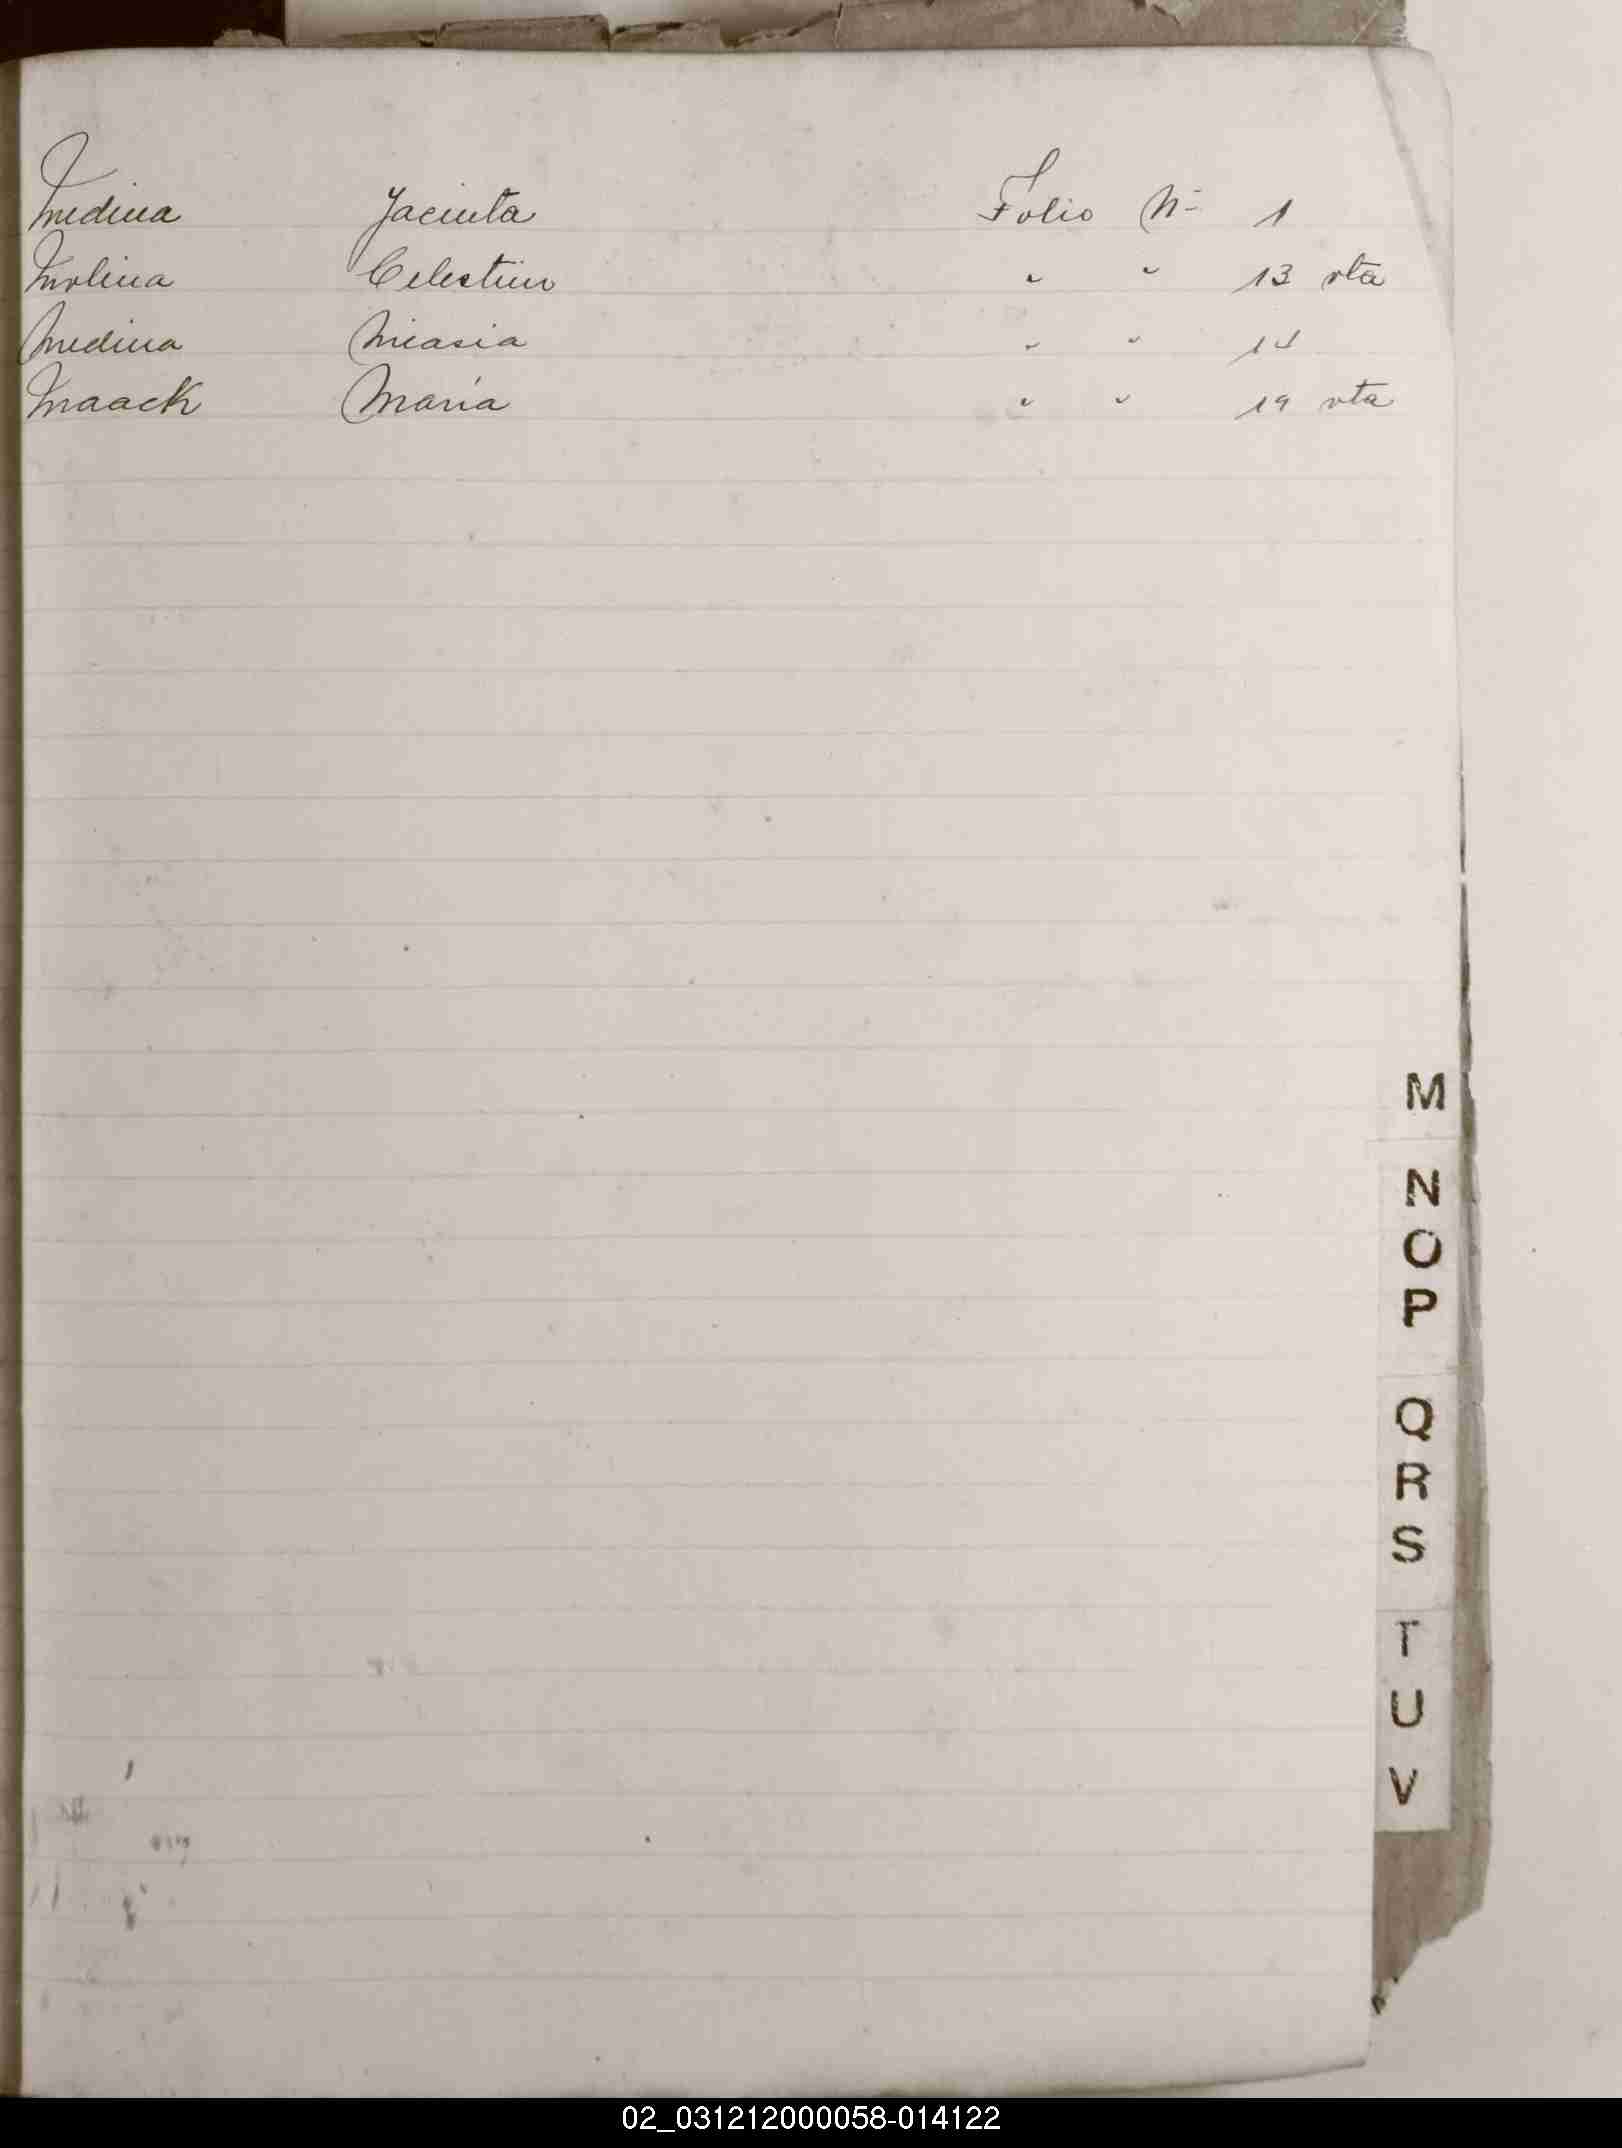 Medina Jacinta Folio N- 1
Molina Celestino " " 13 vta
Medina Nicasia " " 14
Maack María " " 19 vta
M
N
O
P
Q
R
S
T
U
V
02_031212000058-014122